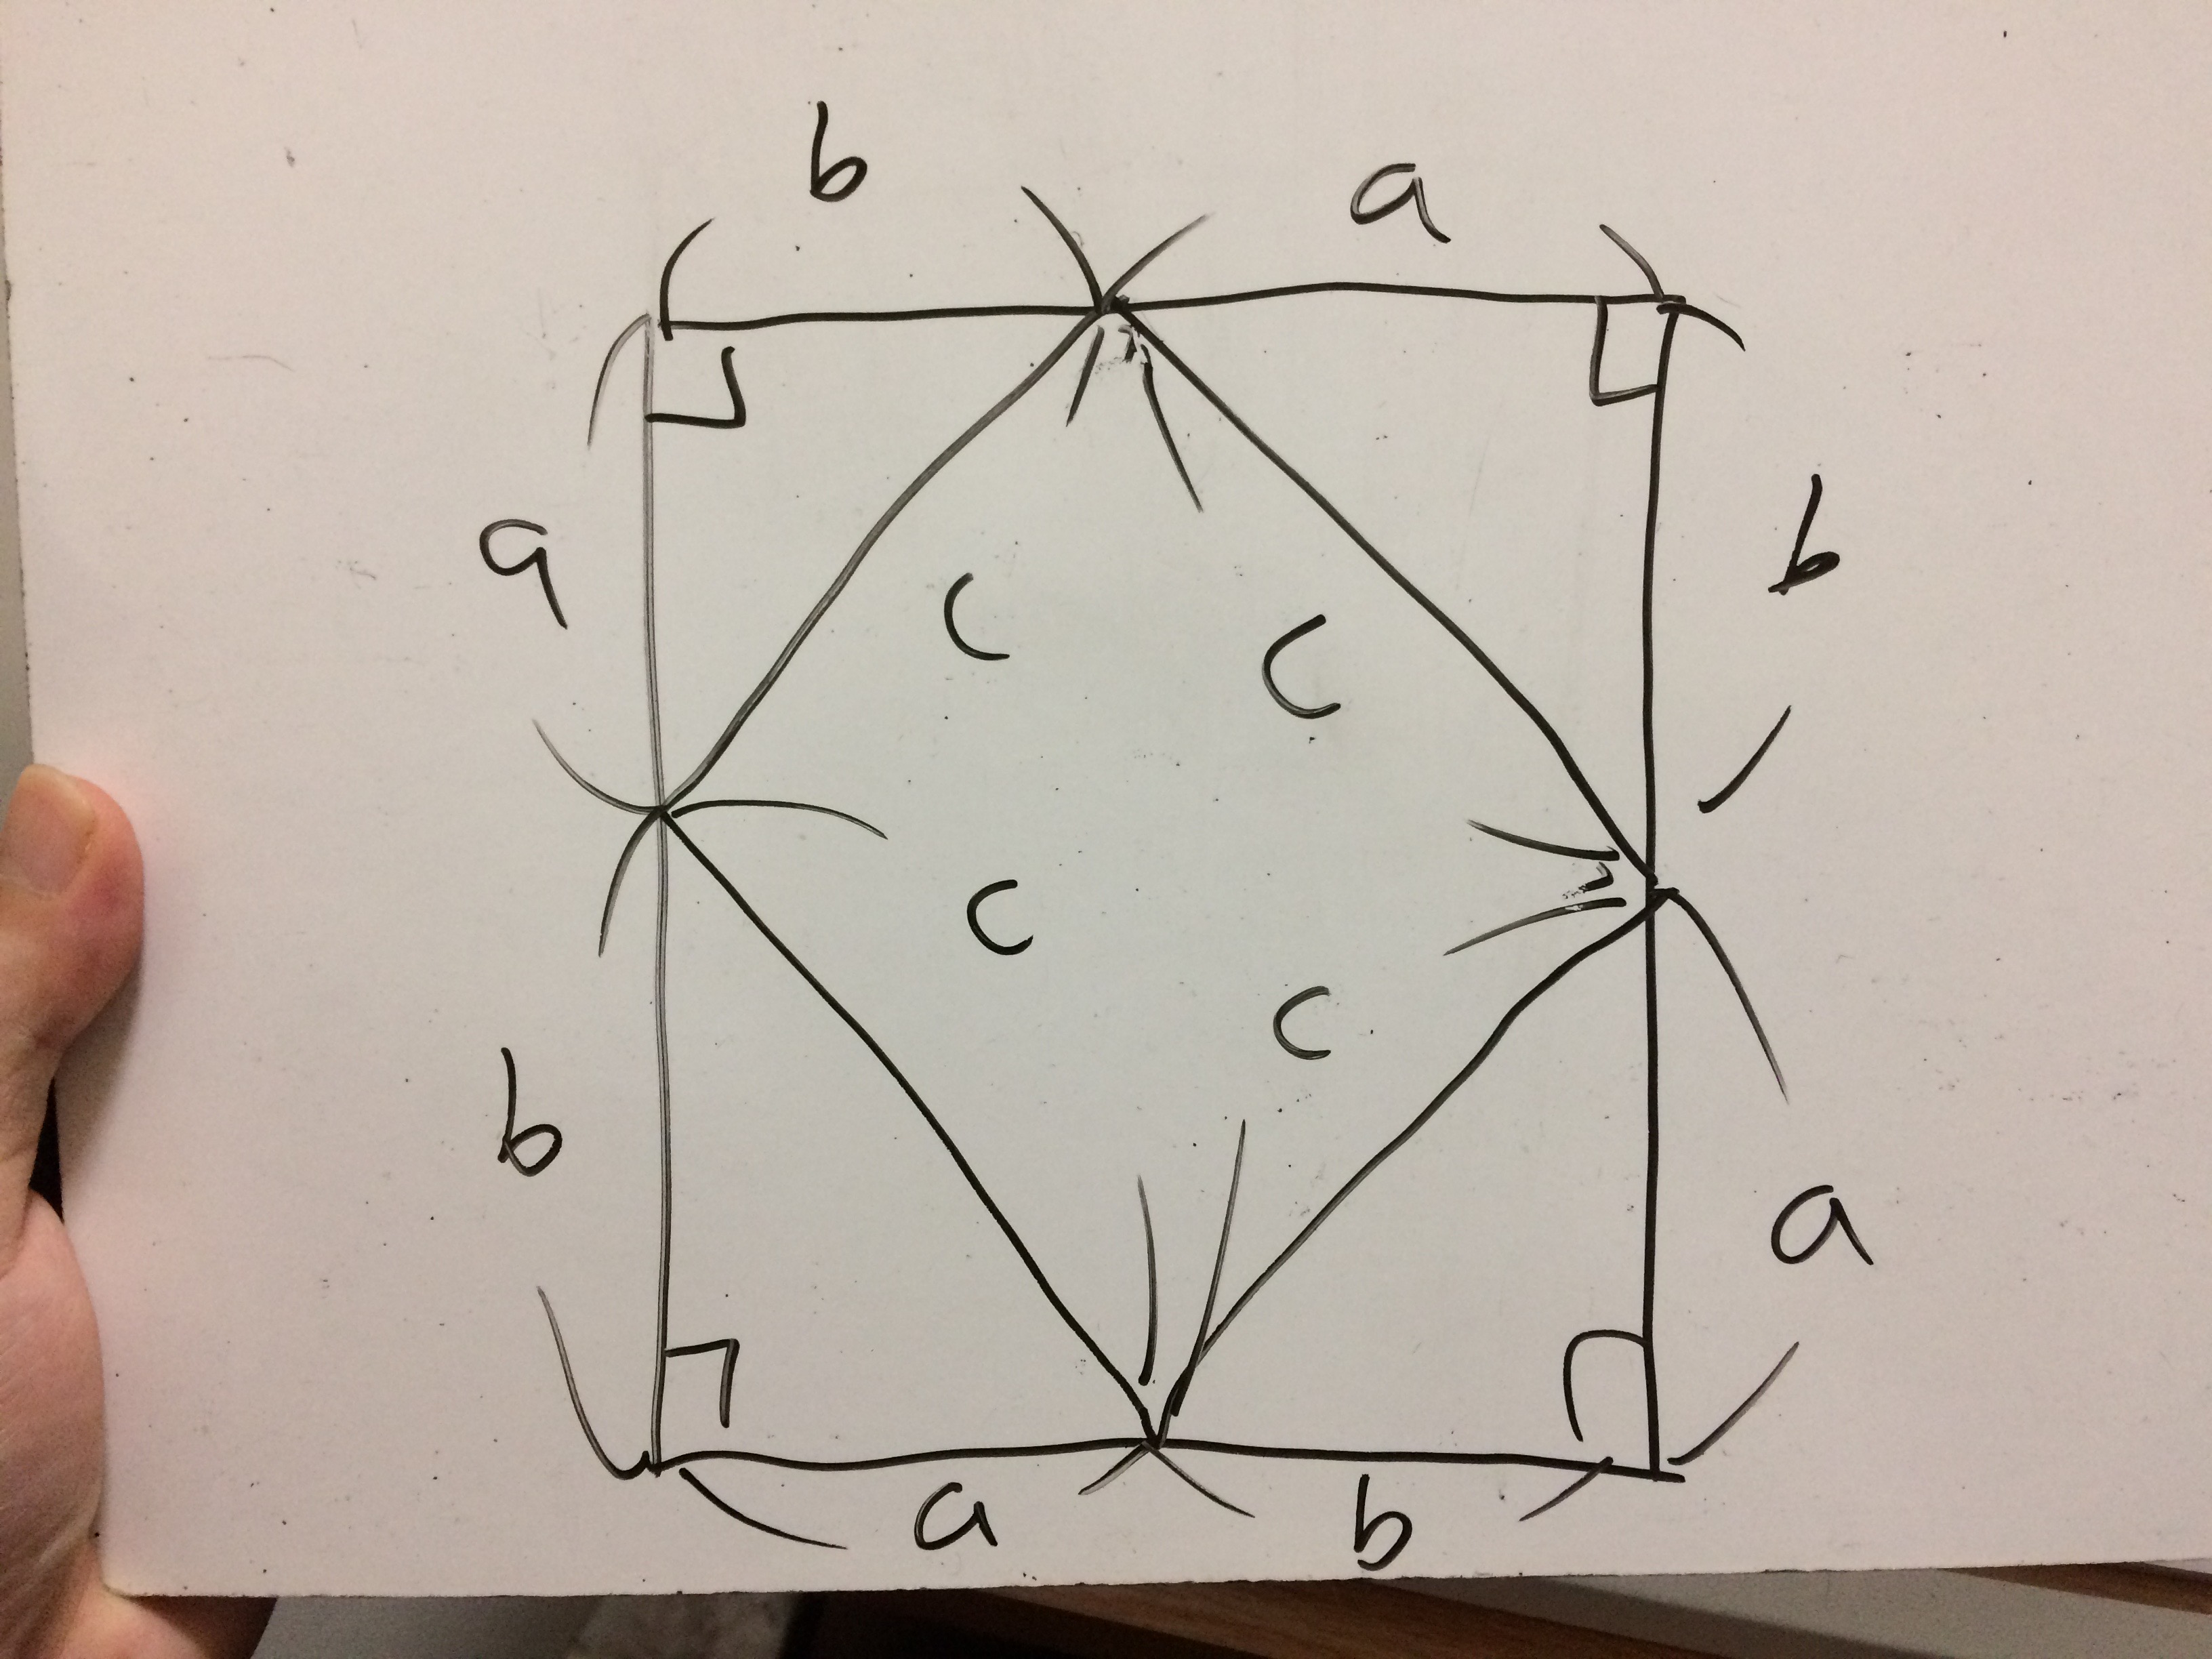 b
a
a
b
c
c
c
c
b
a
a
b